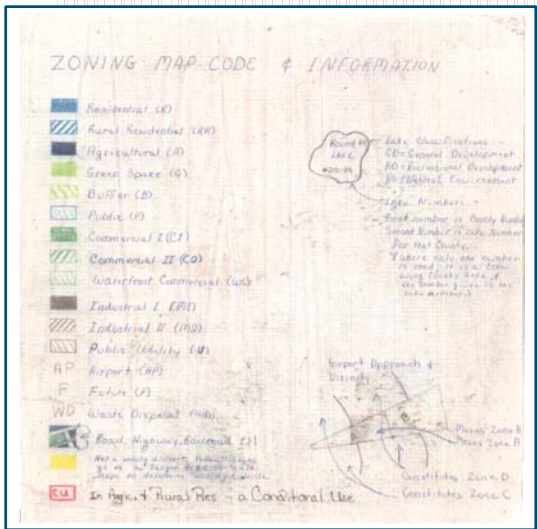 ZONING MAP CODE & INFORMATION
Residential (R)
Rural Residential (RR)
Agricultural (A)
Green Space (G)
Buffer (B)
Public (P)
Commercial I (C1)
Commercial II (C2)
Waterfront Commercial (WC)
Industrial I (M1)
Industrial II (M2)
Public Utility (U)
AP Airport (AP)
F Future (F)
WD Waste Disposal (WD)
Road, Highway, Railroad
Not a zoning district
go to a larger
CU In Agric. & Rural Res - a Conditional Use
Round
Lake
Lake Classifications:-
GD= General Development
RD= Recreational Development
Natural Environment
Lake Numbers -
First number is County Number
Second Number is Lake Number
For that County.
Where only one number
is used, it is a Crow
Wing County Lake, &
the number given is the
lake number.
Airport Approach &
Vicinity
A
B
Means Zone B
Means Zone A
Constitutes Zone D
Constitutes Zone C